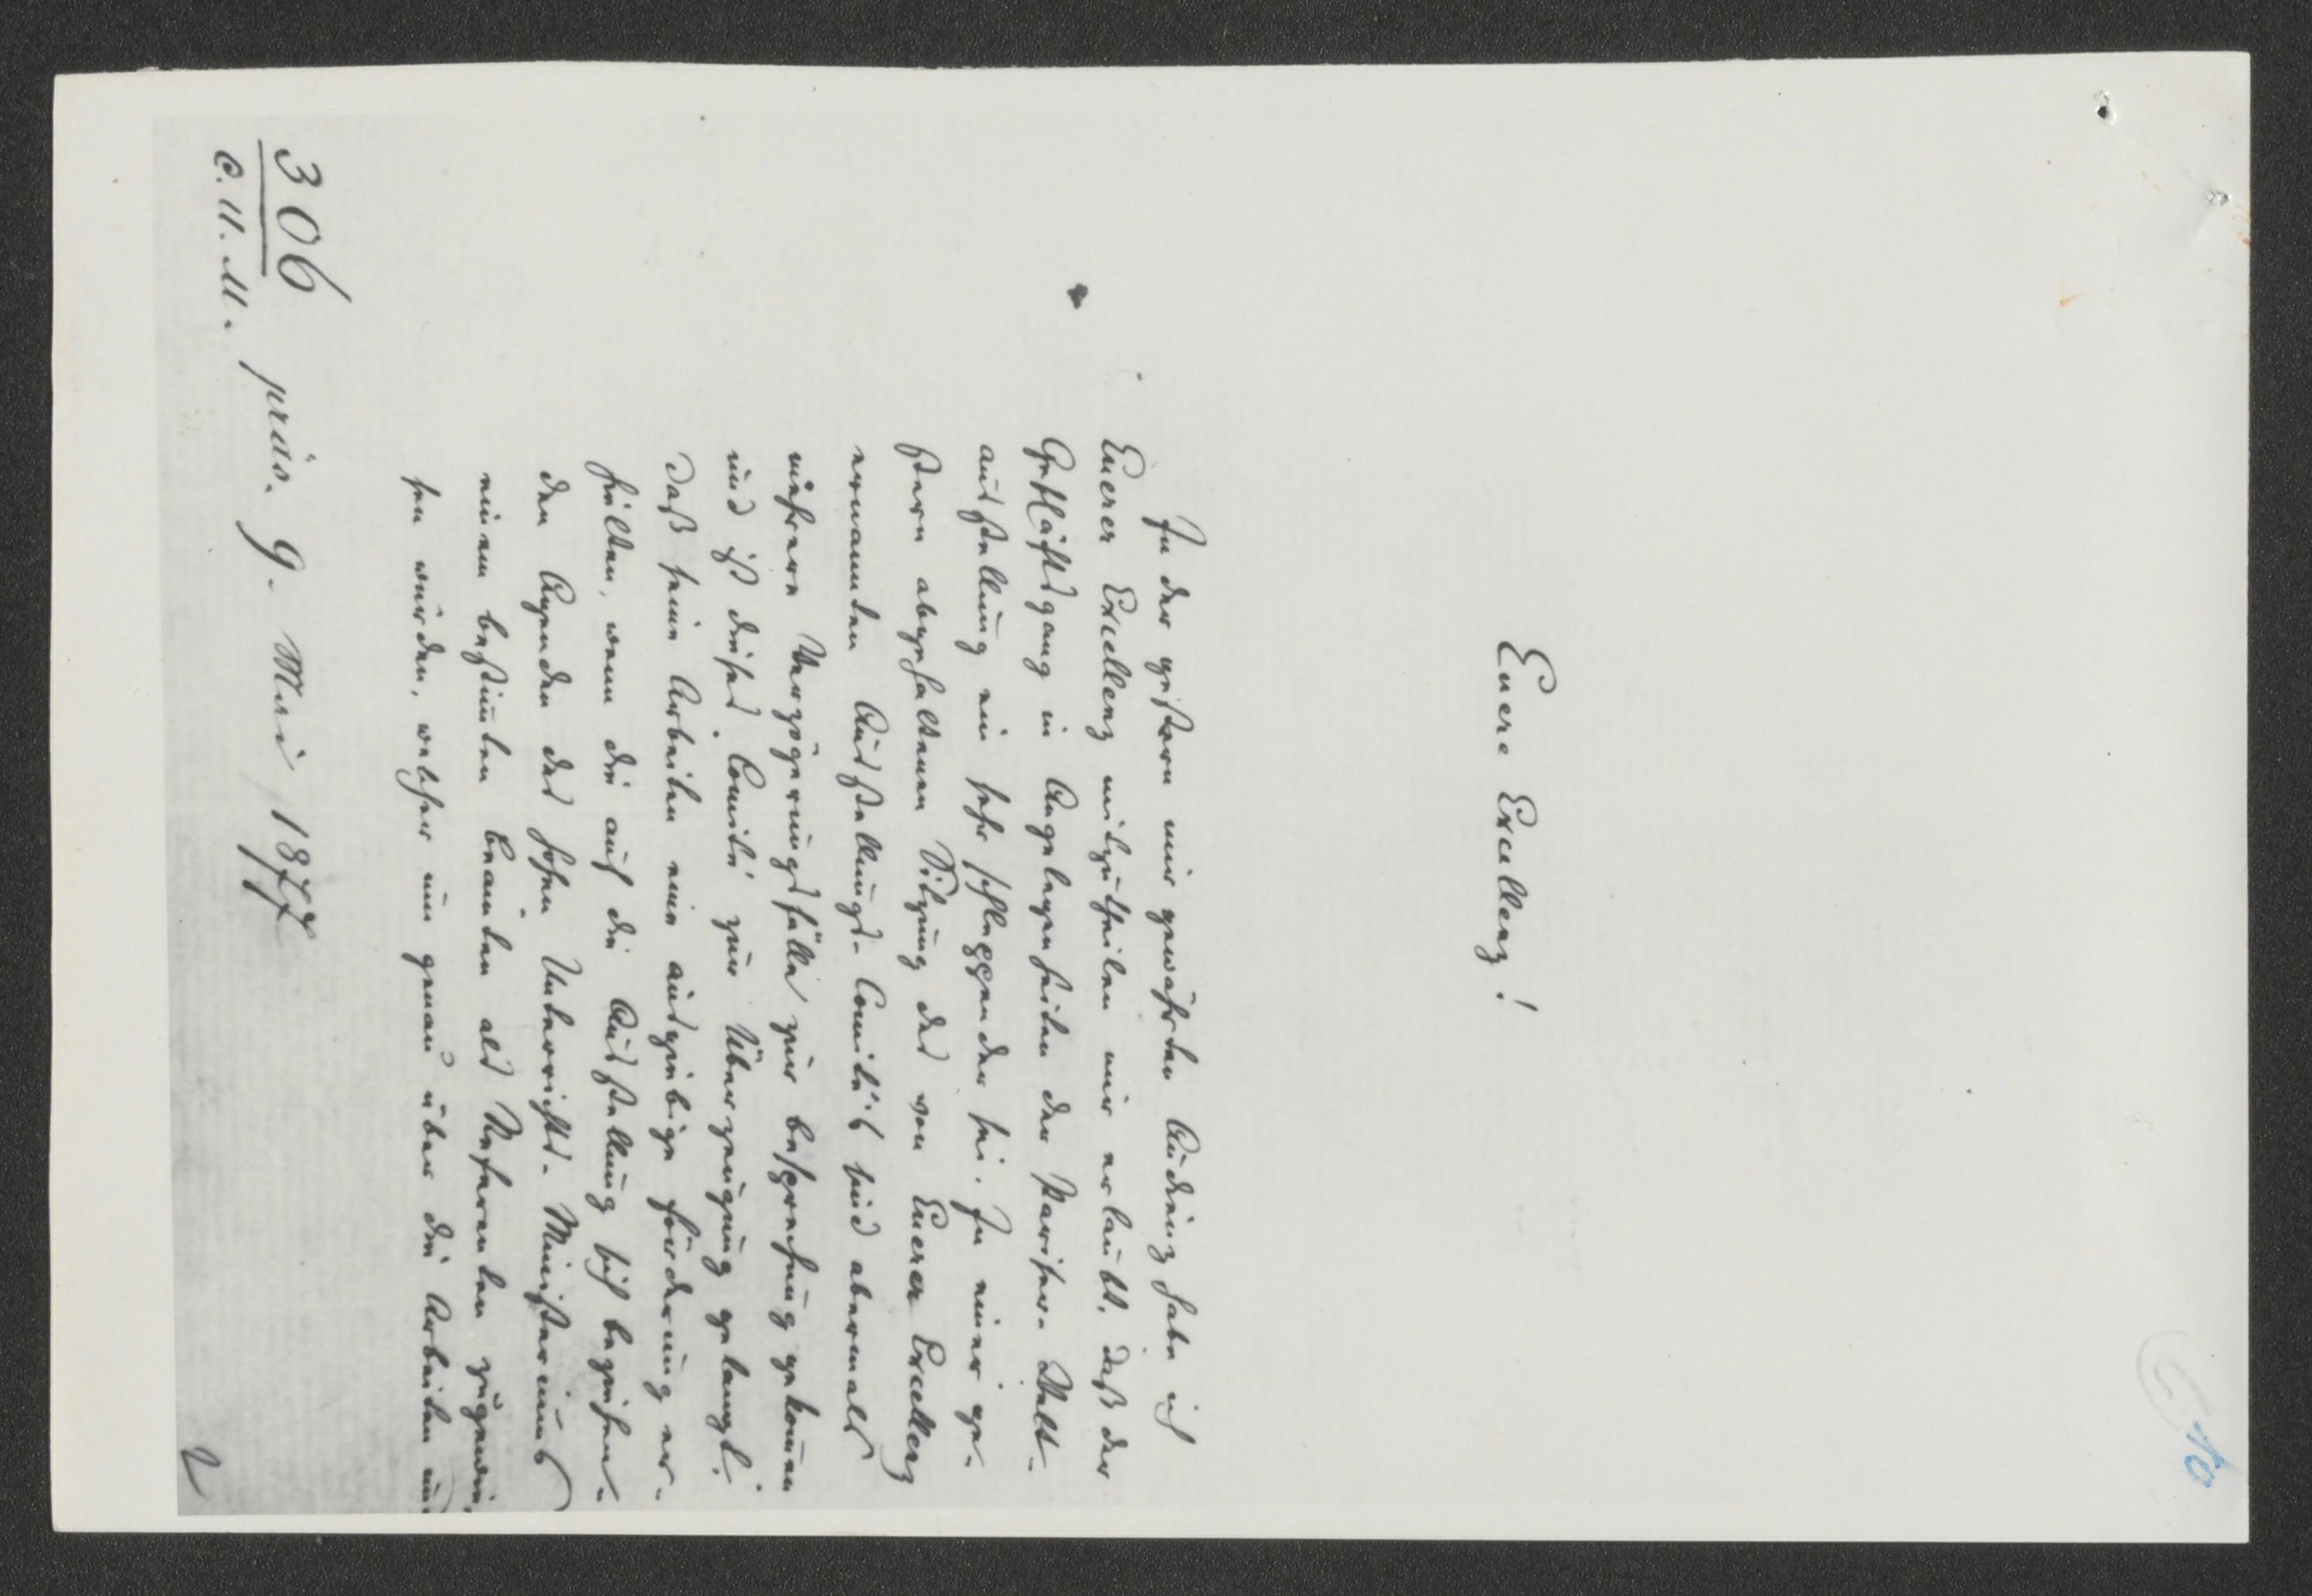 10
Euere Excellenz!
In der gestern mir gewährten Audienz habe ich
Euerer Excellenz mitzutheilen mir erlaubt, daß der
Geschäftsgang in Angelegenheiten der Pariser-Welt-
ausstellung ein sehr schleppender sei. In einer ge-
stern abgehaltenen Sitzung des von Euerer Excellenz
ernannten Ausstellungs-Comité's sind abermals
mehrere Verzögerungsfälle zur Besprechung gekom̄en
und ist dieses Comité zur Überzeugung gelangt,
daß seine Arbeiten eine ausgiebige Förderung er-
hielten, wenn die auf die Ausstellung sich beziehen-
den Agenden des hohen Unterrichts-Ministeriums
einem bestim̄ten Beamten als Referenten zugewie-
sen würden, welcher nun genau über die Arbeiten und
306
C.U.M. präs. 9. Mai 1877